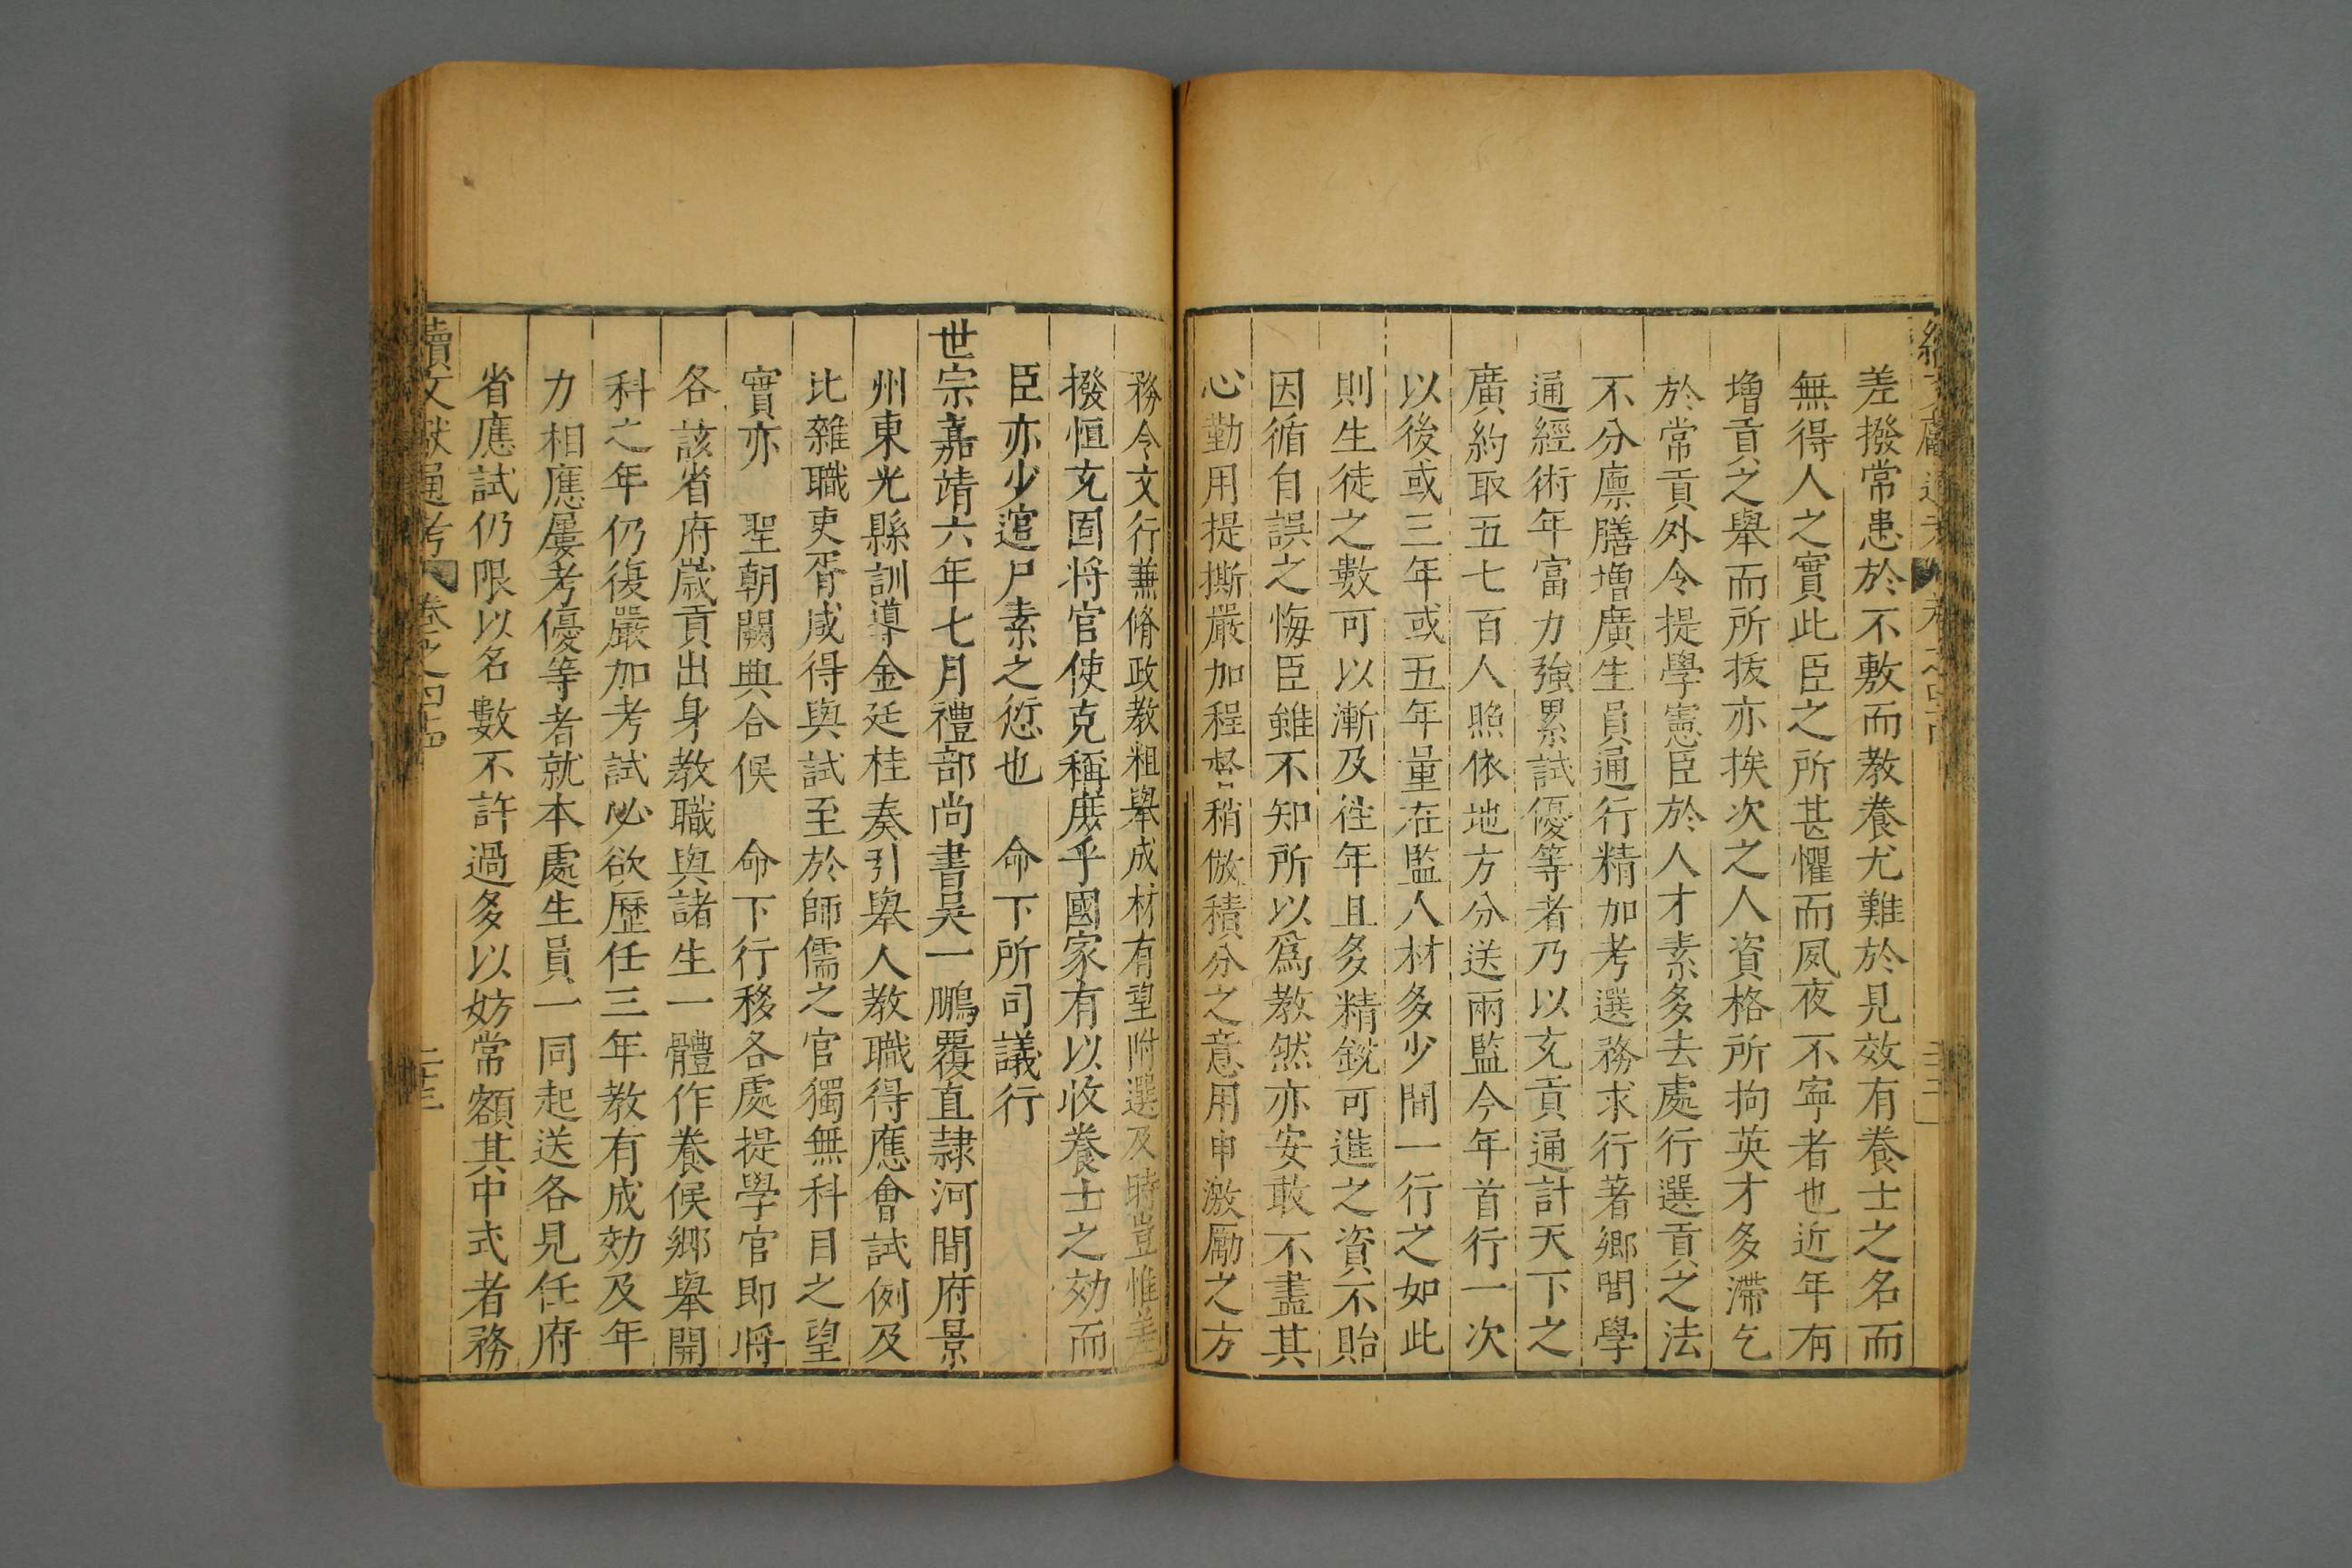 差撥常患於不敷而教養尤難於見效有養士之名而
無得人之實此臣之所甚懼而夙夜不寧者也近年有
增貢之舉而所拔亦挨次之人資格所拘英才多滯乞
於常貢外令提學憲臣於人才素多去處行選貢之法
不分廩膳增廣生員通行精加考選務求行著鄉閭學
通經術年富力強累試優等者乃以充貢通計天下之
廣約取五七百人照依地方分送兩監今年首行一次
以後或三年或五年量在監人材多少間一行之如此
則生徒之數可以漸及往年且多精銳可進之資不貽
因循自誤之悔臣雖不知所以爲教然亦安敢不盡其
心勤用提撕嚴加程督稍倣積分之意用申激勵之方
務令文行兼脩政教粗舉成材有望附選及時豈惟差
撥恒充固將官使克稱庶乎國家有以收養士之効而
臣亦少逭尸素之愆也 命下所司議行
世宗嘉靖六年七月禮部尚書吳一鵬覆直隷河間府景
州東光縣訓導金廷桂奏引舉人教職得應會試例及
比雜職吏胥咸得與試至於師儒之官獨無科目之望
實亦 聖朝闕典合候 命下行移各處提學官即將
各該省府歲貢出身教職與諸生一體作養候鄉舉開
科之年仍復嚴加考試必欲歷任三年教有成効及年
力相應屢考優等者就本處生員一同起送各見任府
省應試仍限以名數不許過多以妨常額其中式者務
續文獻通考 卷之四十四 二十三